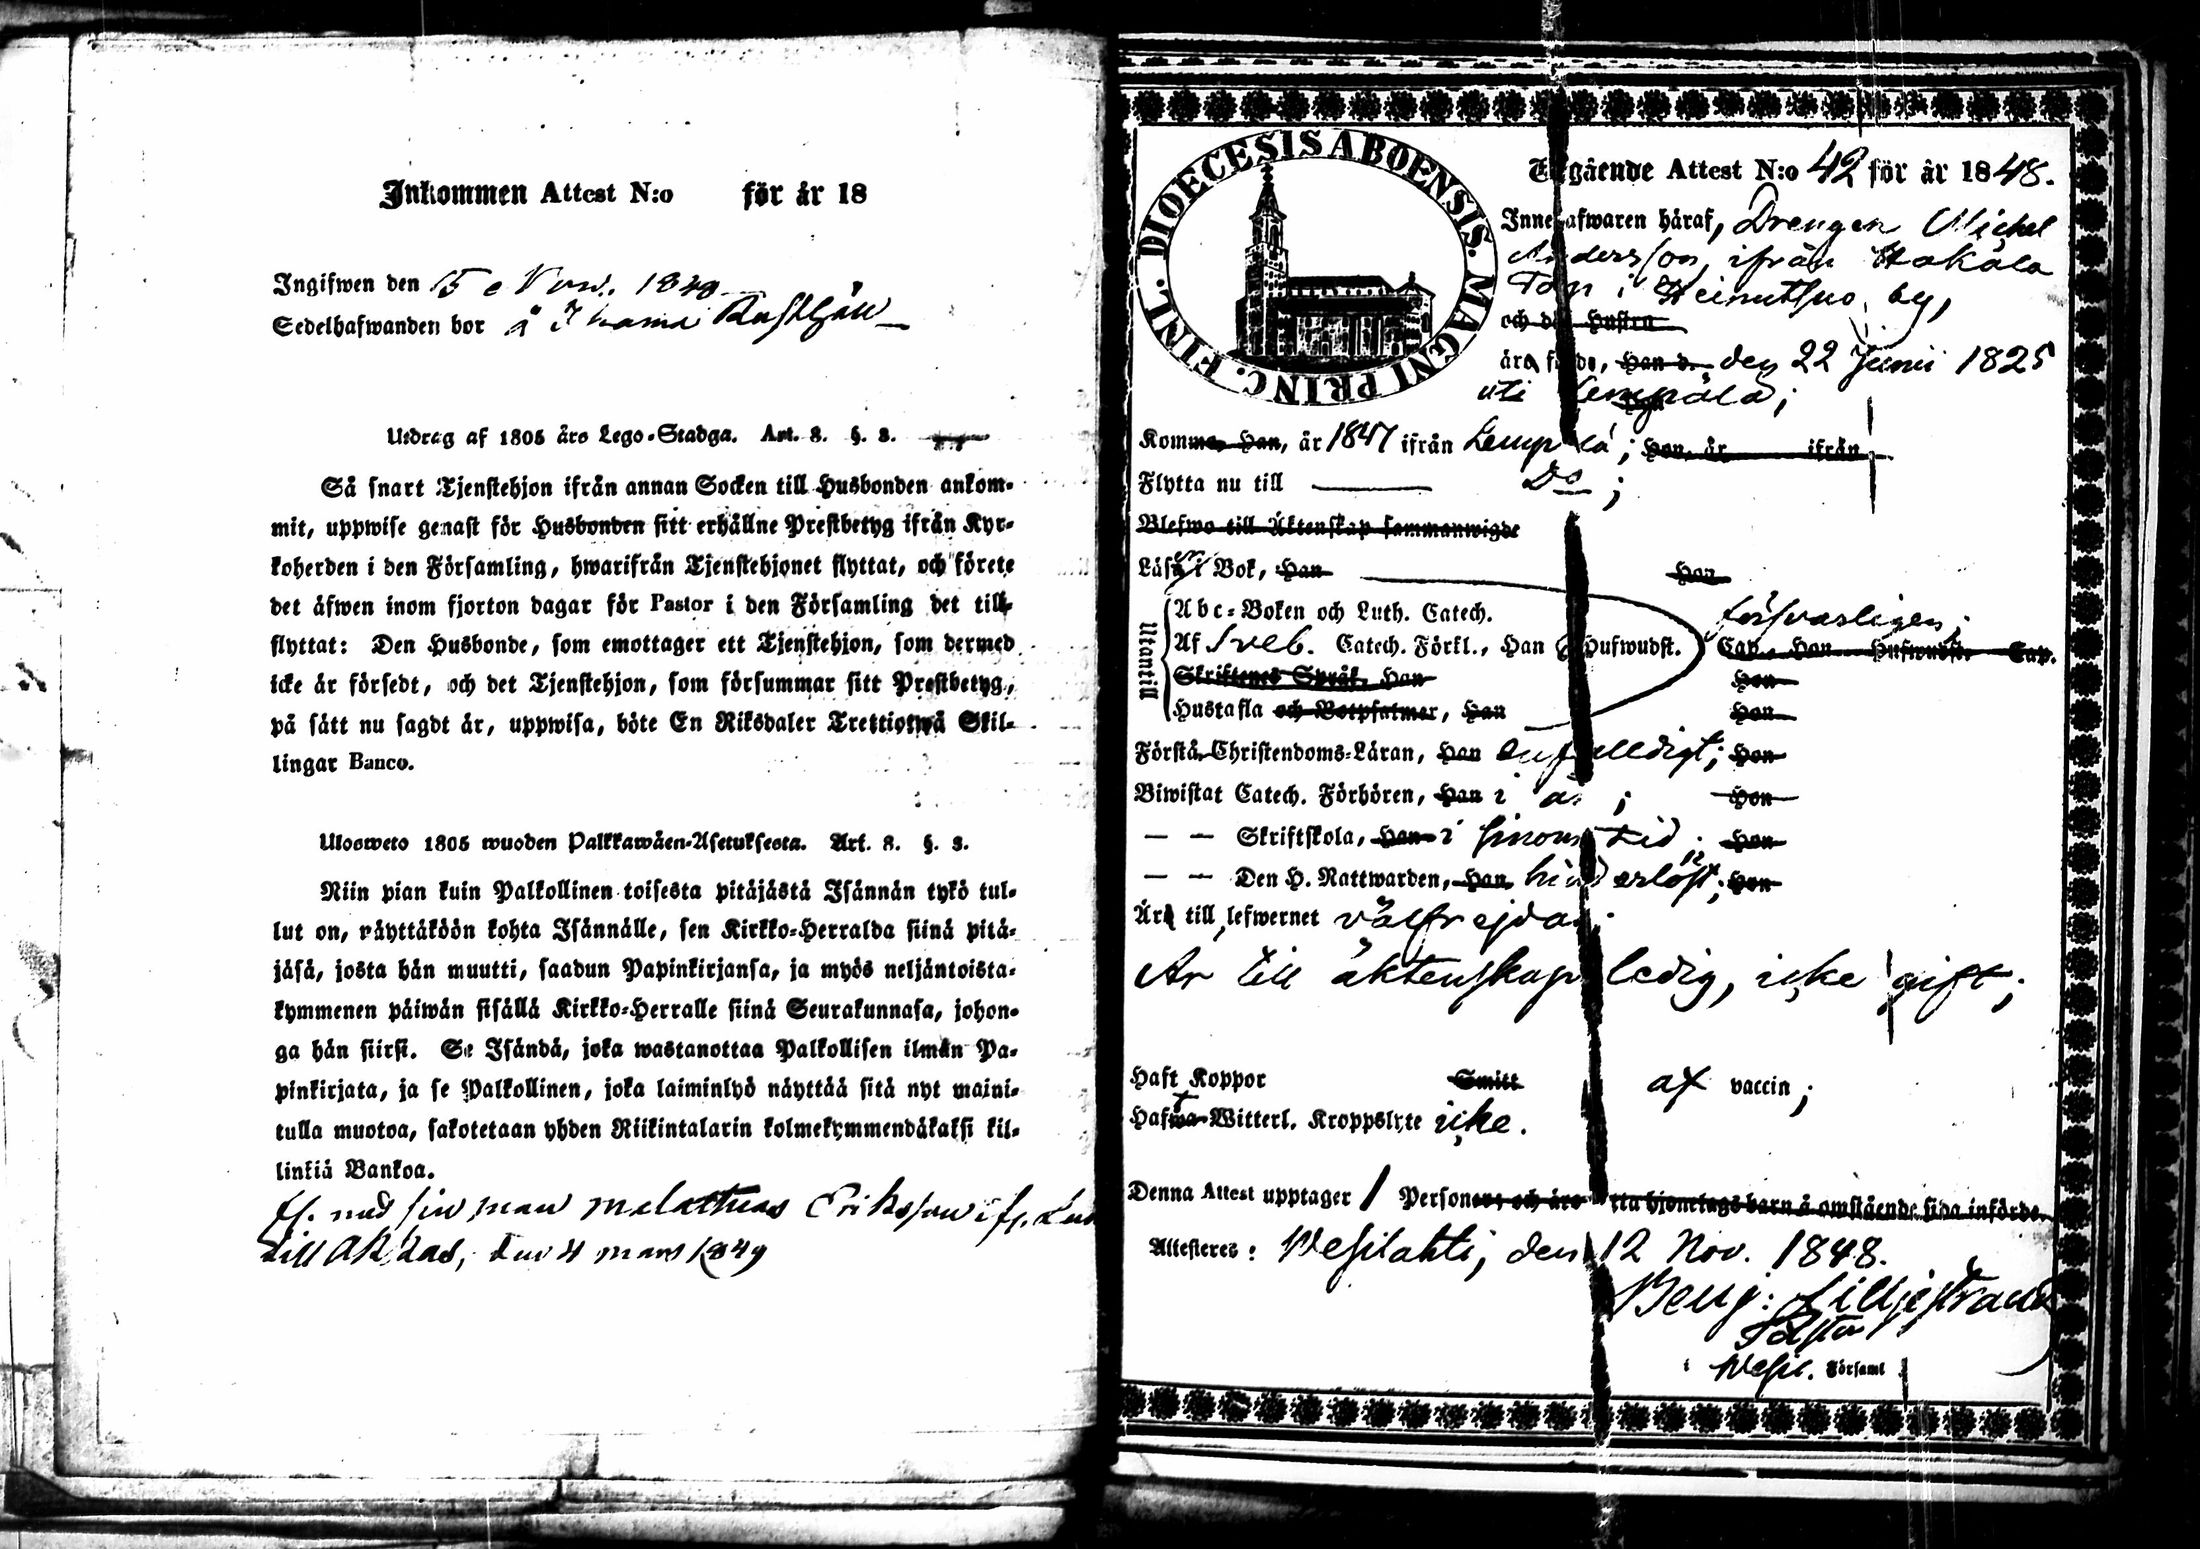 Inkommen Attest N:o för år 18
Ingifwen den 15 Nov. 1848
Sedelhafwanden bor å
Utdrag af 1805 års Lego-Stadga. Art. 8. §. 3.
Så snart Tjenstehjon ifrån annan Socken till Husbonden ankom-
mit, uppwise genast för Husbonden sitt erhållne Prestbetyg ifrån Kyr-
koherden i den Församling, hwarifrån Tjenstehjonet flyttat, och förete
det äfwen inom fjorton dagar för Pastor i den Församling det till-
flyttat: Den Husbonde, som emottager ett Tjenstehjon, som dermed
icke är försedt, och det Tjenstehjon, som försummar sitt Prestbetyg,
på sätt nu sagdt är, uppwisa, böte En Riksdaler Trettiotwå Skil-
lingar Banco.
Ulosweto 1805 wuoden Palkkawäen-Asetuksesta. Art. 8. §. 3.
Niin pian kuin Palkollinen toisesta pitäjästä Isännän tykö tul-
lut on, näyttäköön kohta Isännälle, sen Kirkko-Herralda siinä pitä-
jäsä, josta hän muutti, saadun Papinkirjansa, ja myös neljäntoista-
kymmenen päiwän sisällä Kirkko-Herralle siinä Seurakunnasa, johon-
ga hän siirsi. Se Isändä, joka wastanottaa Palkollisen ilman Pa-
pinkirjata, ja se Palkollinen, joka laiminlyö näyttää sitä nyt maini-
tulla muotoa, sakotetaan yhden Riikintalarin kolmekymmendäkaksi kil-
linkiä Bankoa.
fl. med sin man Eriksson
till den 4 mars 1849
DIOECESIS ABOENSIS. MAGNI PRINC. FINL.
Utgående Attest N:o 42 för år 1848.
Innehafwaren häraf, Drengen Michel
Andersson, ifrån Hakala
Torp i Heinutsuo by,
och des Hustru
äro födde, Han d. den 22 Junii 1825
uti Lempäla;
Komme Han, år 1847 ifrån Lempäla; Hon, år ifrån
Flytta nu till Do;
Blefwo till Äktenskap sammanwigde
Läser i Bok, Han Hon
Utantill
Abc-Boken och Luth. Catech. försvarligen;
Af Sveb. Catech. Förkl., Han Hufwudst. Cap. Hon Hufwudst. Cap.
Skriftenes Språk, Han Hon
Hustafla och Botpsalmer, Han Hon
Förstå Christendoms-Läran, Han enfalldigt; Hon
Biwistat Catech. Förhören, Han i år; Hon
— — Skriftskola, Han i sinom tid; Hon
— — Den H. Nattwarden, Han Hon
Är till lefwernet välfrejdad.
Är till äktenskap ledig, icke gift;
Haft Koppor Smitt af vaccin;
Haft Witterl. Kroppslyte icke.
Denna Attest upptager 1 Personer och äro detta hjonelags barn å omstående sida införde.
Attesteras: Wesilahti, den 12 Nov. 1848.
Benj: Lilljestrand
Pastor
i Wesil. Församl.